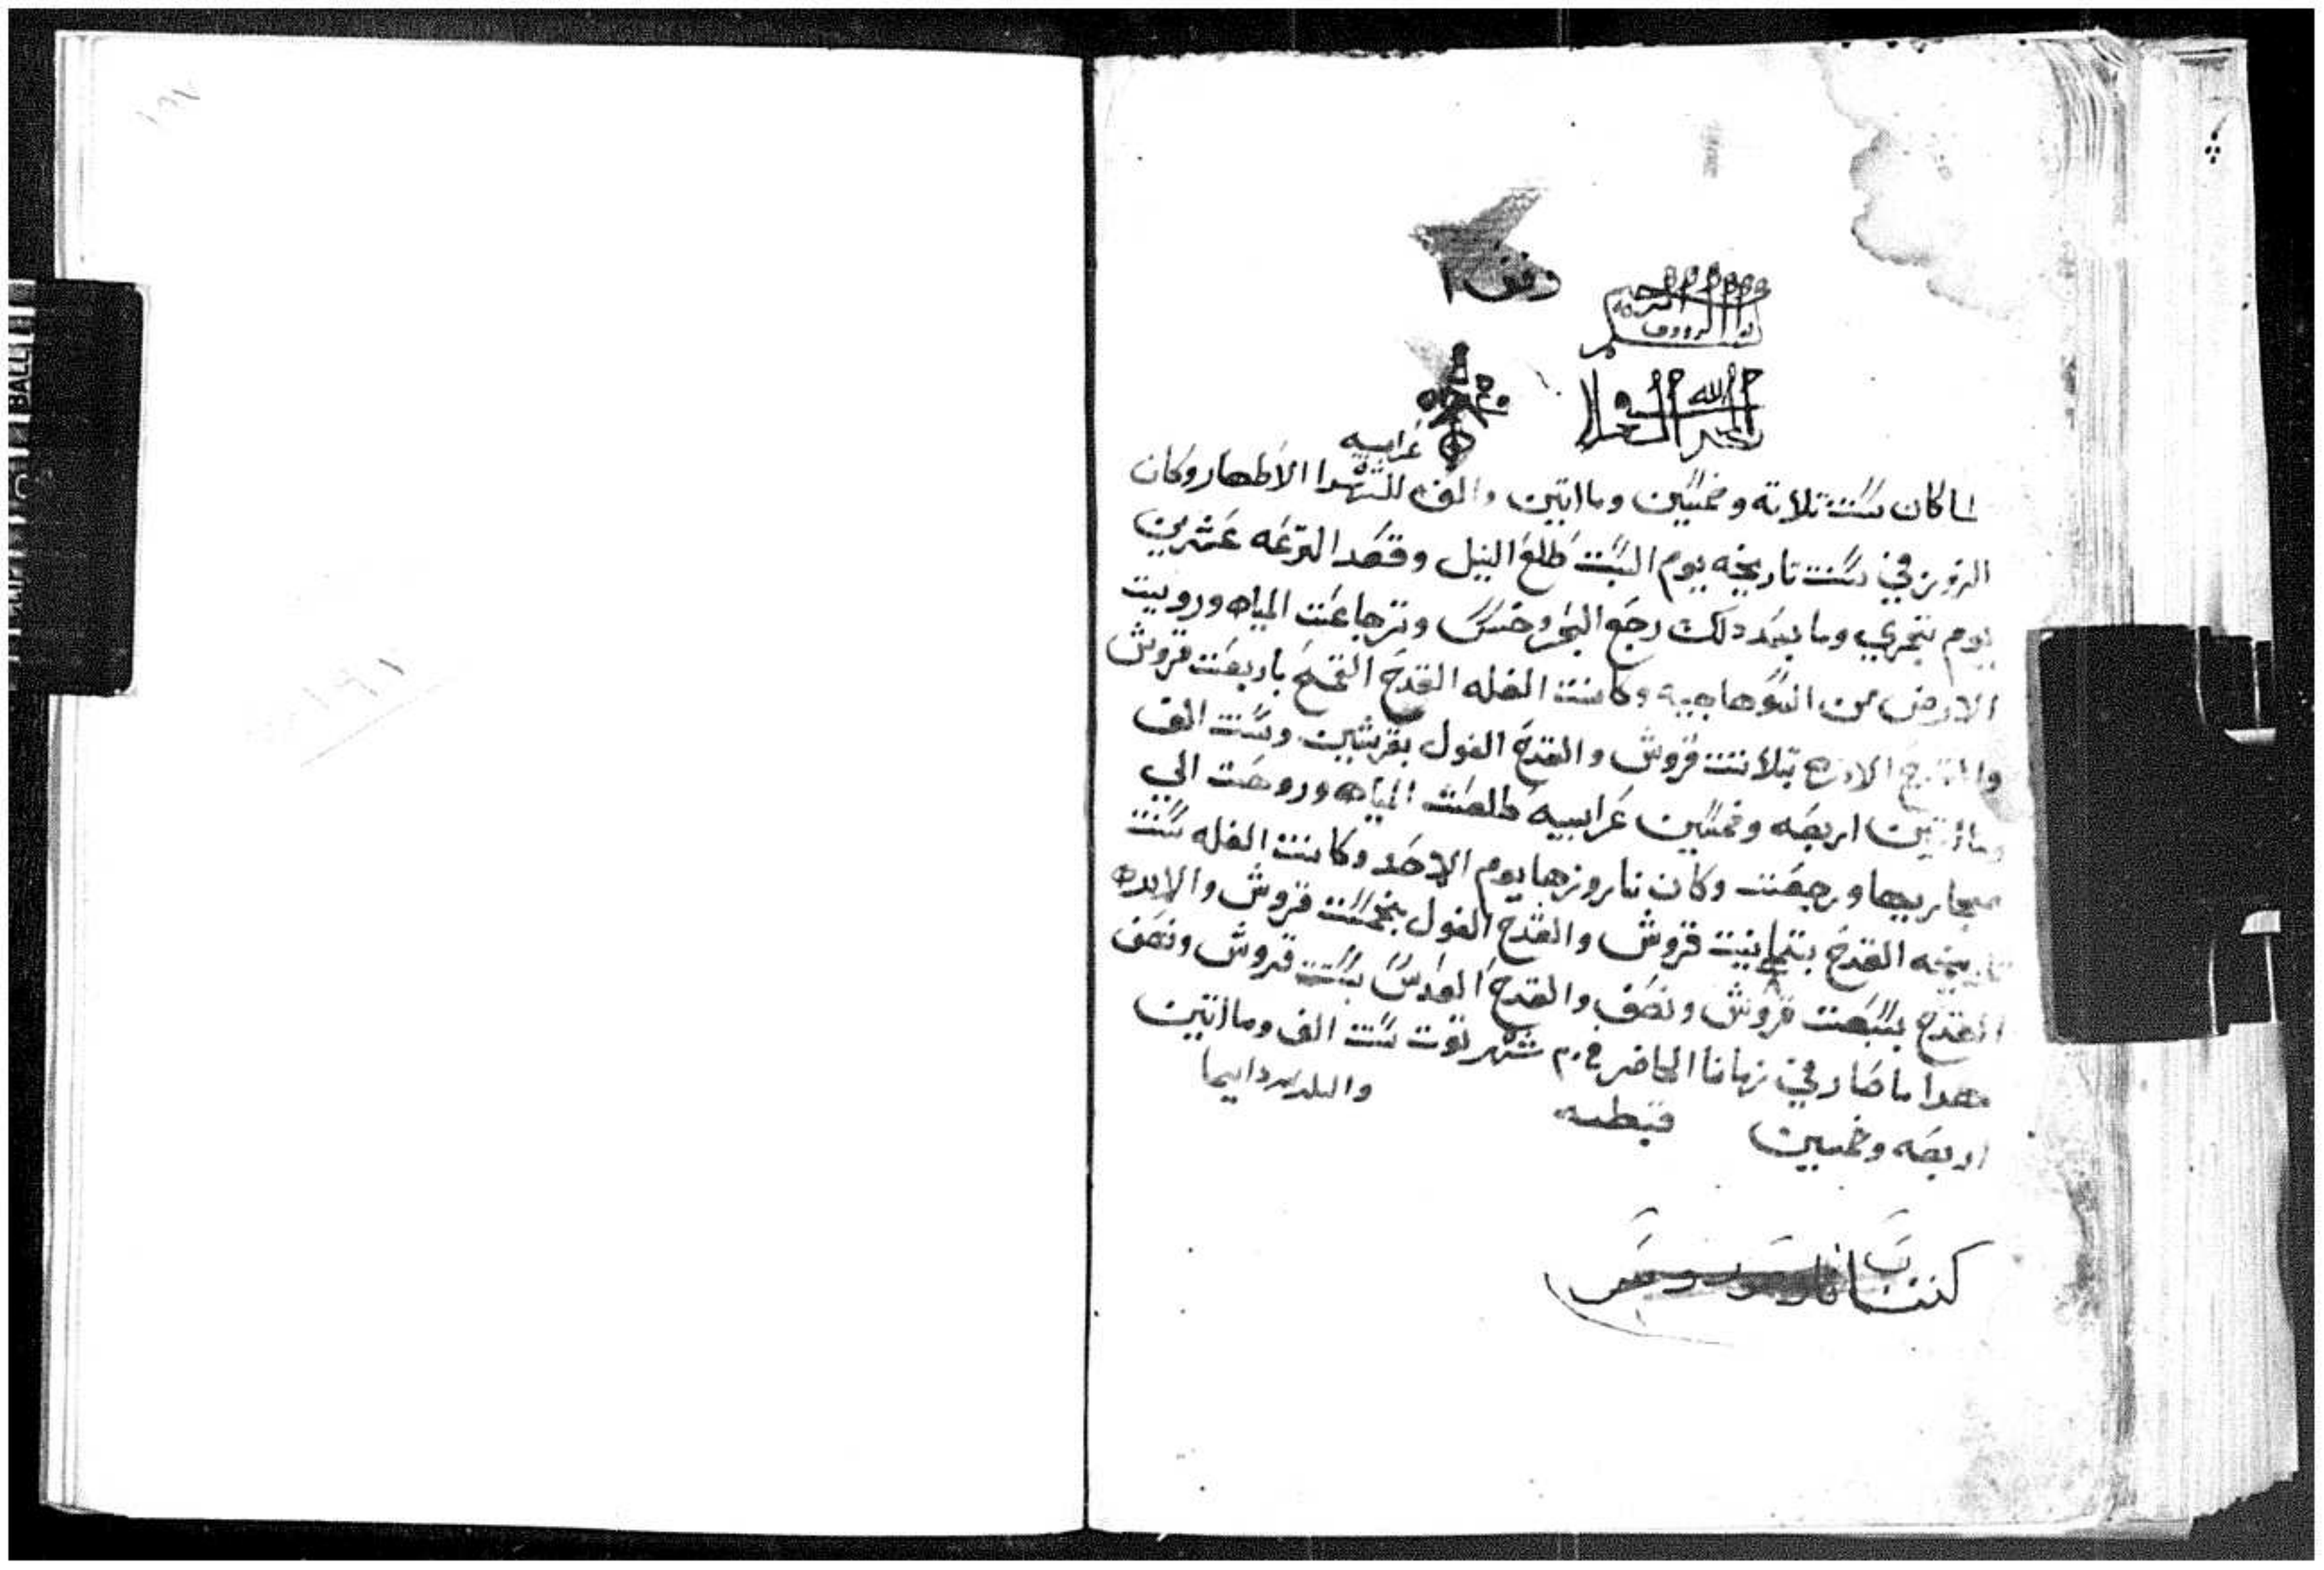 وقف
الله
غرابيه
لما كان سنت تلاتة وخمسين وماأتين والف للشهدا الاطهار وكان
النروز في سنت تاريخه يوم السبت طلع النيل وقعد الترعه عشرين
يوم تجري وما بعد دلك رجع البحر وخس وترجاعت المياه ورويت
الارض من السوهاجيه وكانت الغله القدح القمح باربعت قروش
والقدح الادره بتلاتت قروش والقدح الفول بقرشين وسنت الف
وماأتين اربعه وخمسين غرابييه طلعت المياه وروحت الي
مجاريها ورجعت وكان ناروزها يوم الاحد وكانت الغله سنت
تاريخه القدح بتمانيت قروش والقدح الفول بخمست قروش والادره
القدح بسبعت قروش ونصف والقدح العدس بستت قروش ونصف
هدا ما صار في زماننا الحاضر في ٢٠ شهر توت سنت الف وماأتين
اربعه وخمسين قبطيه دايما